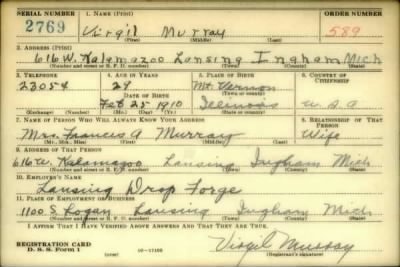 SERIAL NUMBER 1. NAME (Print) ORDER NUMBER
2769 Virgil Murray 589
(First) (Middle) (Last)
2. ADDRESS (Print)
616 W. Kalamazoo Lansing Ingham Mich
(Number and street or R. F. D. number) (Town) (County) (State)
3. TELEPHONE 4. AGE IN YEARS 5. PLACE OF BIRTH 6. COUNTRY OF CITIZENSHIP
23054 29 Mt. Vernon
DATE OF BIRTH (Town or county)
Feb 25 1910 Illinois U.S.A
(Exchange) (Number) (Mo.) (Day) (Yr.) (State or country)
7. NAME OF PERSON WHO WILL ALWAYS KNOW YOUR ADDRESS 8. RELATIONSHIP OF THAT PERSON
Mrs. Frances A Murray Wife
(Mr., Mrs., Miss) (First) (Middle) (Last)
9. ADDRESS OF THAT PERSON
616 W. Kalamazoo Lansing Ingham Mich
(Number and street or R. F. D. number) (Town) (County) (State)
10. EMPLOYER'S NAME
Lansing Drop Forge
11. PLACE OF EMPLOYMENT OR BUSINESS
1100 S. Logan Lansing Ingham Mich
(Number and street or R. F. D. number) (Town) (County) (State)
I AFFIRM THAT I HAVE VERIFIED ABOVE ANSWERS AND THAT THEY ARE TRUE.
REGISTRATION CARD
D. S. S. Form 1 (over) 16—17105 Virgil Murray
(Registrant's signature)